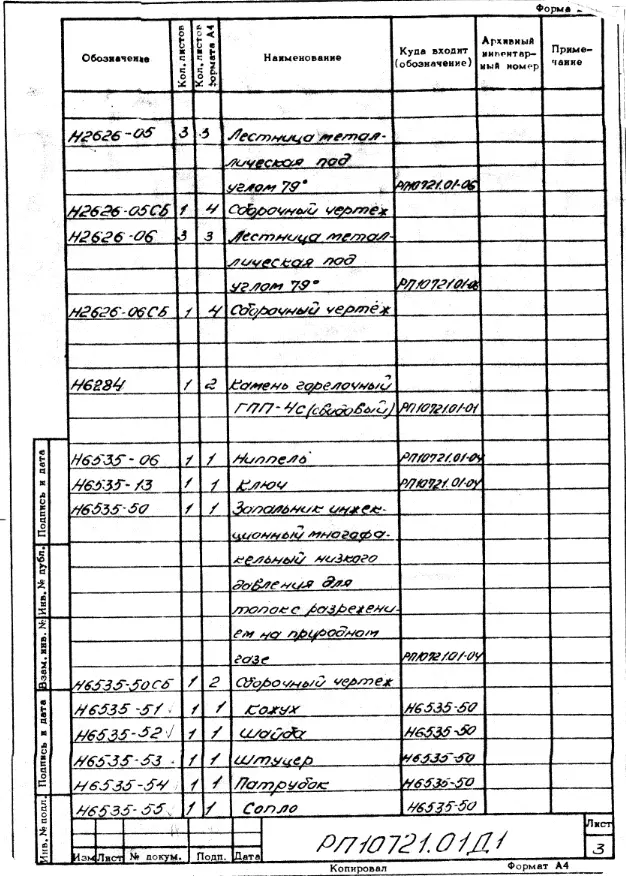 Форма
Обозначение Кол. листов Кол. листов формата А4 Наименование Куда входит (обозначение) Архивный инвентарный номер Примечание
Н2626-05 3 3 Лестница метал-
лическая под
углом 79° РП10721.01-06
Н2626-05СБ 1 4 Сборочный чертеж
Н2626-06 3 3 Лестница метал-
лическая под
углом 79° РП10721.01-06
Н2626-06СБ 1 4 Сборочный чертёж
Н6284 1 2 Камень горелочный
ГПП-4с РП10721.01-01
Н6535-06 1 1 Ниппель РП10721.01-04
Н6535-13 1 1 Ключ РП10721.01-04
Н6535-50 1 1 Запальник инжек-
ционный многофа-
кельный низкого
давления для
топок с разрежени-
ем на природном
газе РП10721.01-04
Н6535-50СБ 1 2 Сборочный чертеж
Н6535-51 1 1 Кожух Н6535-50
Н6535-52 1 1 Шайба Н6535-50
Н6535-53 1 1 Штуцер Н6535-50
Н6535-54 1 1 Патрубок Н6535-50
Н6535-55 1 1 Сопло Н6535-50
Подпись и дата
Инв. № публ.
Взам. инв. №
Подпись и дата
Инв. № подл.
Изм Лист № докум. Подп. Дата
РП10721.01Д1
Лист
3
Копировал Формат А4